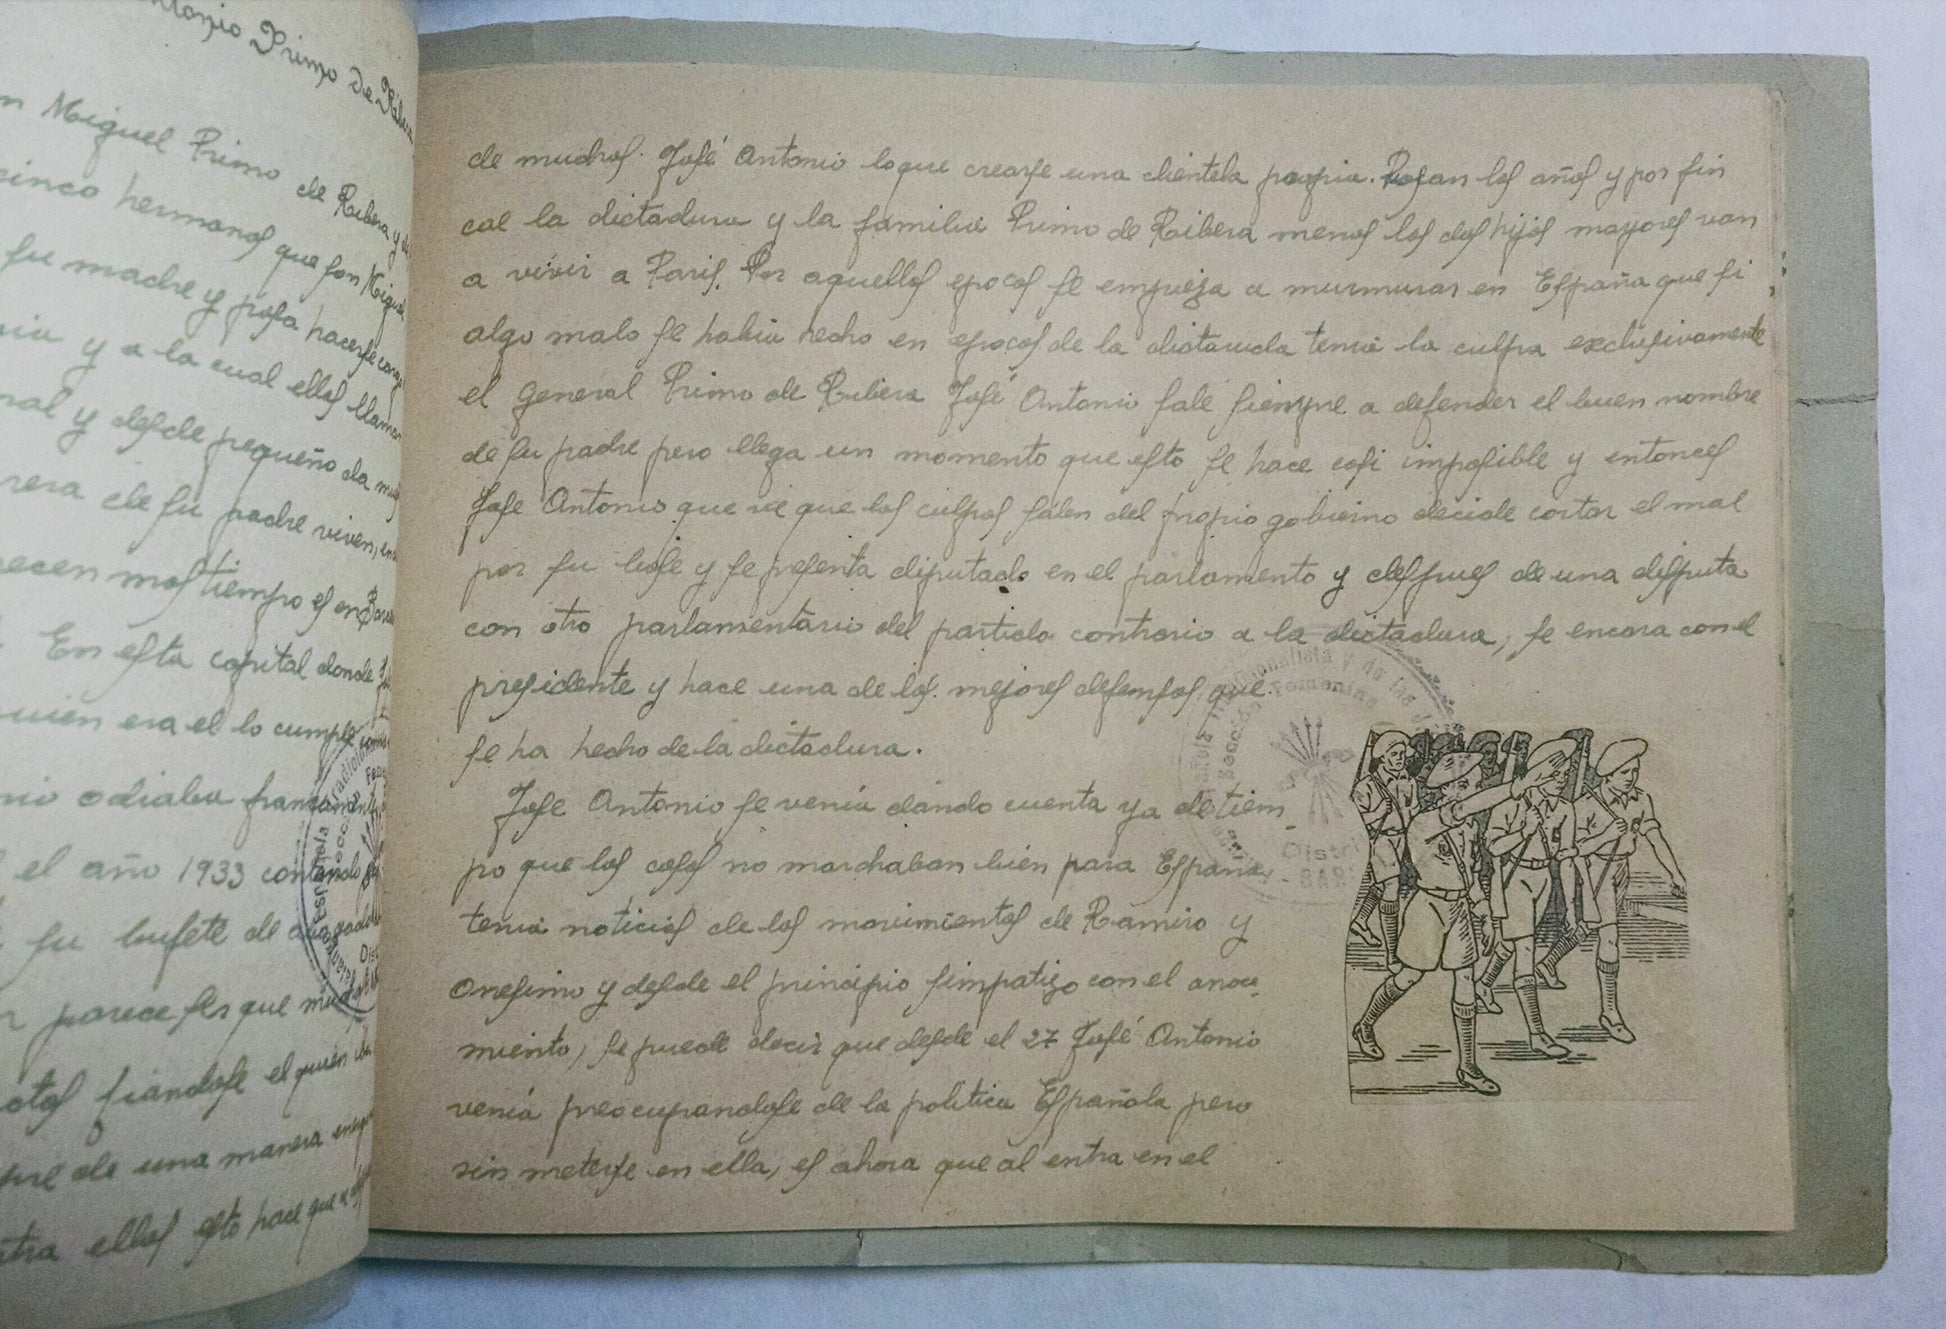 Antonio Primo De Ribera
Miguel Primo de Ribera y de
cinco hermanos que son Miguel
su madre y pasa hacerse cargo
y a la cual ellos llaman
y desde pequeño da
de su padre viven, en
mas tiempo es en
En esta capital donde
quien era el lo cumple como
odiaba francamente
el año 1933 contando
su bufete de abogado
parece ser que
fiandose el quien
de una manera
ellos esto hace que
de muchos. José Antonio loque crearse una clientela propia. Pasan los años y por fin
cae la dictadura y la familia Primo de Ribera menos los dos hijos mayores van
a vivir a Paris. Por aquellas epocas se empieza a murmurar en España que si
algo malo se habia hecho en epocas de la dictaruda tenia la culpa exclusivamente
el General Primo de Ribera José Antonio sale siempre a defender el buen nombre
de su padre pero llega un momento que esto se hace casi imposible y entonces
Jose Antonio que ve que las culpas salen del propio gobierno decide cortar el mal
por su base y se pesenta diputado en el parlamento y despues de una disputa
con otro parlamentario del partido contrario a la dictadura, se encara con el
presidente y hace una de las mejores defensas que
se ha hecho de la dictadura.
Jose Antonio se venia dando cuenta ya de tiem-
po que las cosas no marchaban bien para España,
tenia noticias de los movimientos de Ramiro y
Onesimo y desde el principio simpatizo con el
miento, se puede decir que desde el 27 José Antonio
venia preocupandose de la politica Española pero
sin meterse en ella, es ahora que al entra en el
Tradicionalista y de las J
Sección Femenina
Distri